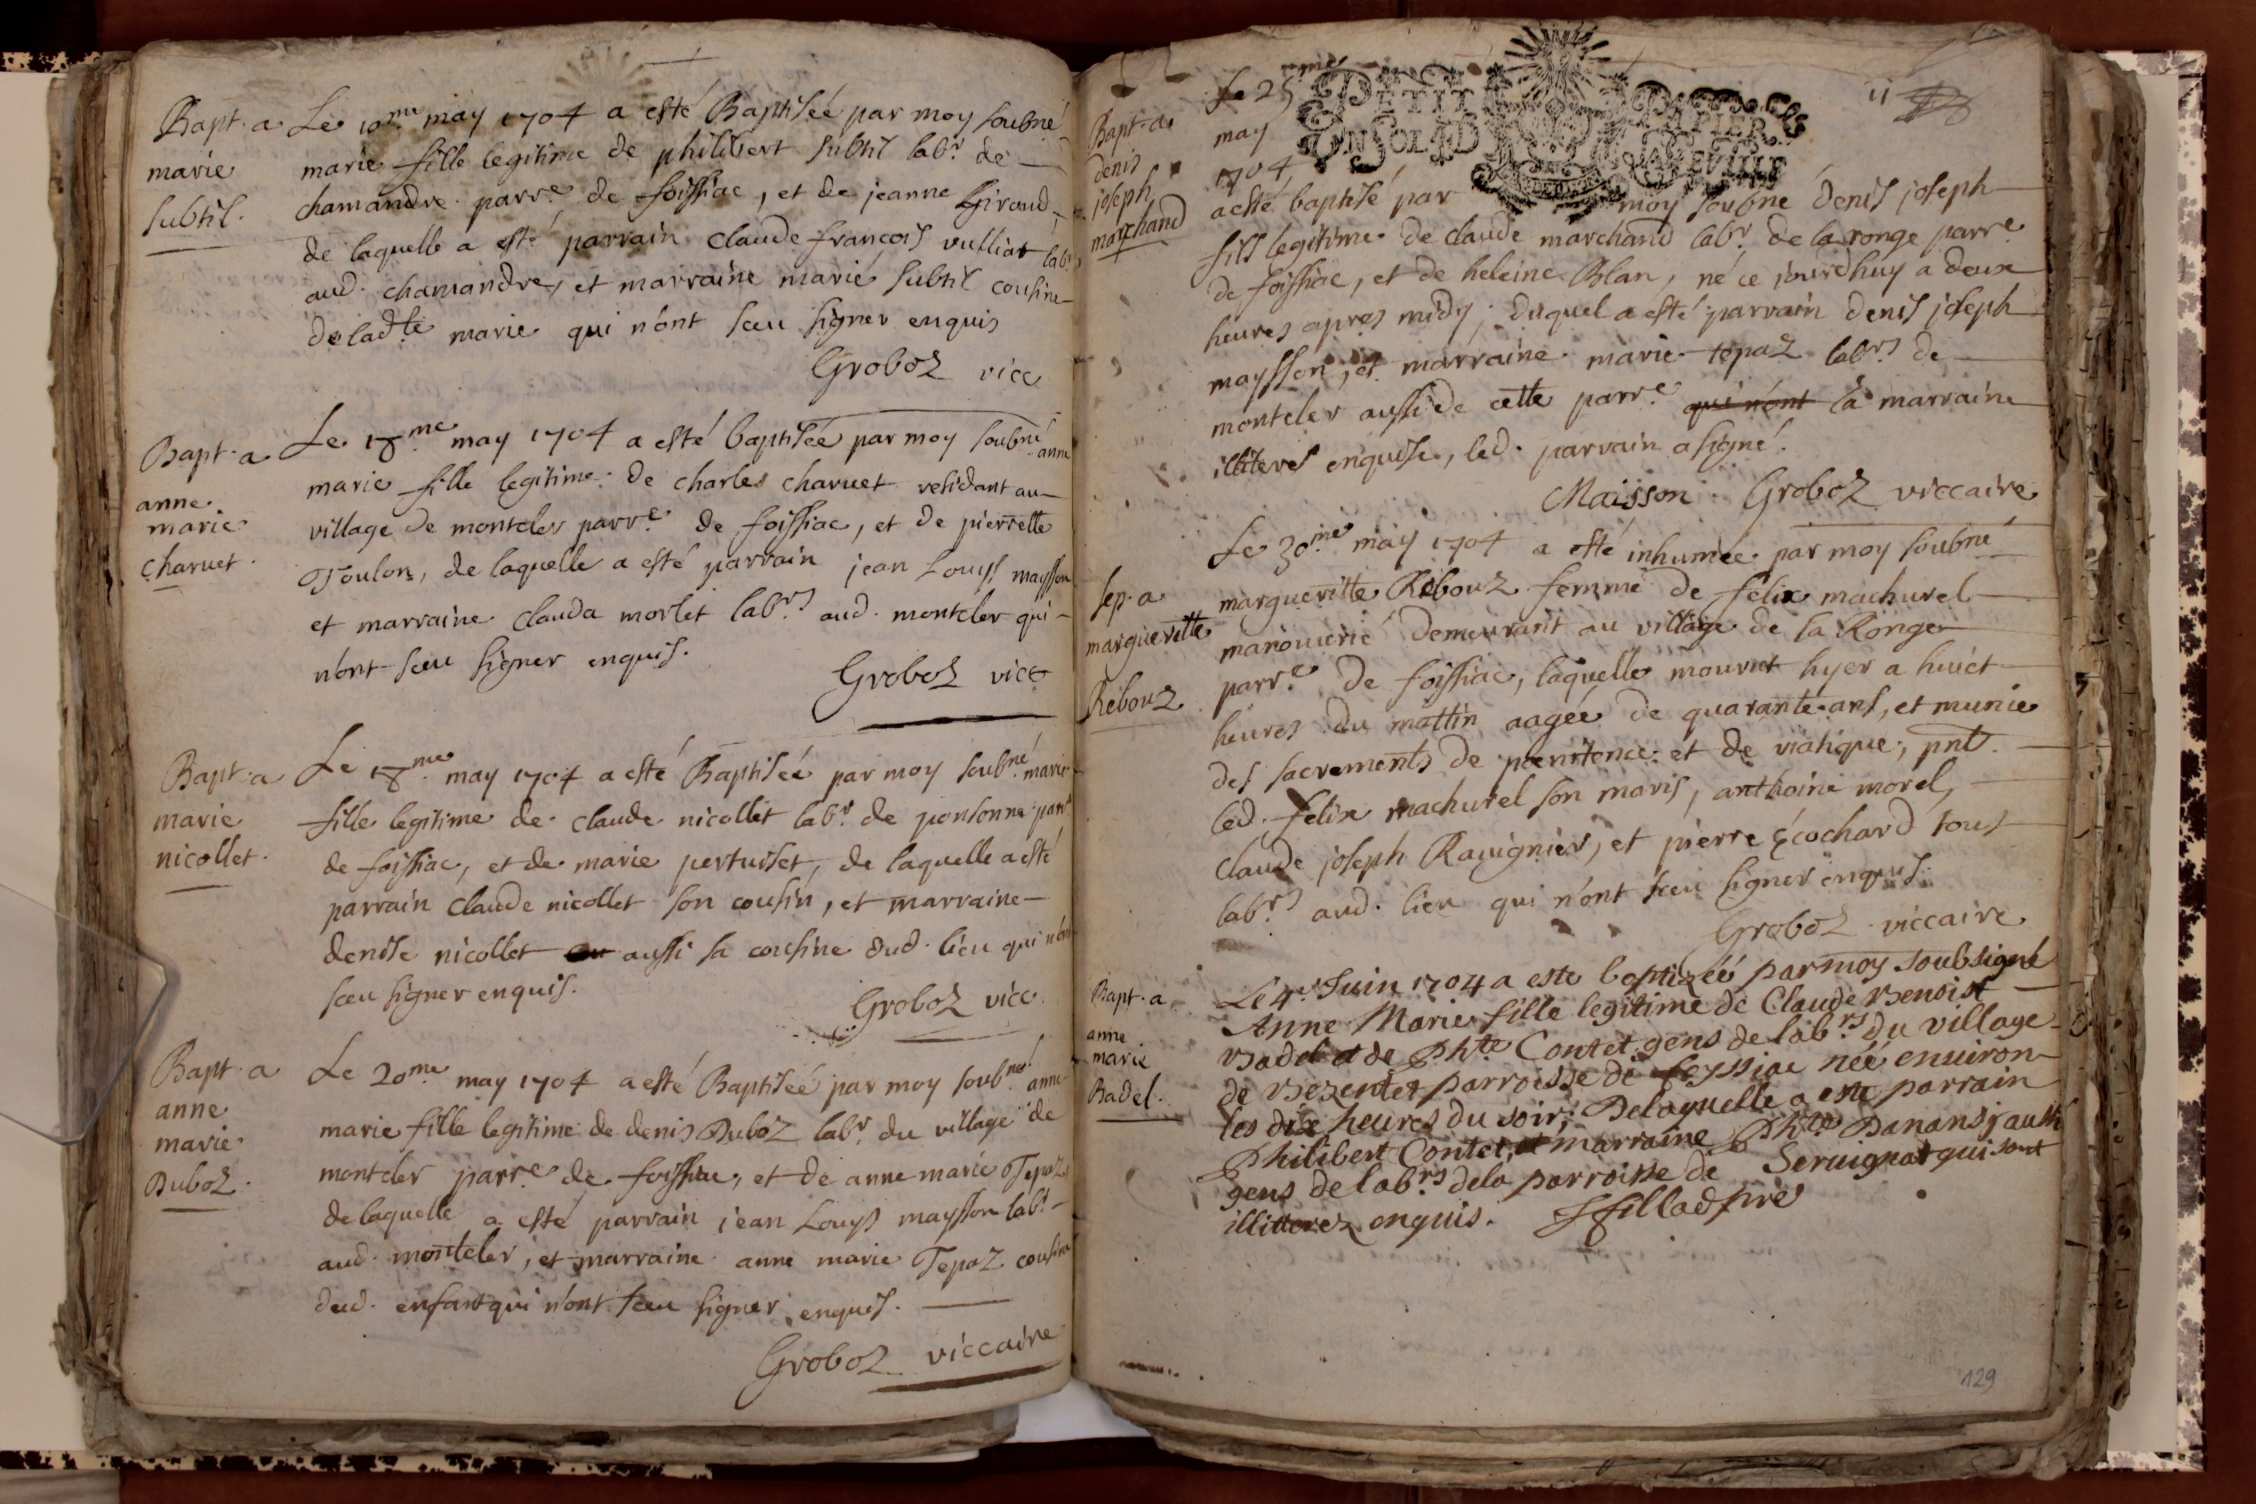 Bapt. a
marie
subtil.
Le 10.me may 1704 a esté Baptisée par moy soubné
marie fille legitime de philibert subtil labr. de
chamandre parr.e de foissiac, et de jeanne Giraud,
de laquelle a esté parrain claude francois vulliat labr
aud. chamandre, et marraine marie subtil cousine
de lad.te marie qui nont sceu signer enquis
Groboz vicc
Bapt. a
anne
marie
charuet.
Le 18.me may 1704 a esté baptisée par moy soubné anne
marie fille legitime de charles charuet residant au
village de monteler parr.e de foissiac, et de pierrette
Toulon, de laquelle a esté parrain jean Louys maysson
et marraine clauda morlet labrs aud. monteler qui
n'ont sceu signer enquis.
Groboz vicc
Bapt. a
marie
nicollet.
Le 18.me may 1704 a esté Baptisée par moy soubné marie
fille legitime de claude nicollet labr. de ponsonna parr
de foissiac, et de marie pertuiset, de laquelle a esté
parrain claude nicollet son cousin, et marraine
denise nicollet aussi sa cousine dud. lieu qui n'ont
sceu signer enquis.
Groboz vicc.
Bapt. a
anne
marie
Duboz.
Le 20.me may 1704 a esté Baptisée par moy soubné anne
marie fille legitime de denis Duboz labr. du village de
monteler parr.e de foissiac, et de anne marie Tepaz
de laquelle a esté parrain jean Louys maysson labr.
aud. monteler, et marraine anne marie Tepaz cousine
dud. enfant qui n'ont sceu signer enquis.
Groboz viccaire
11
PETIT PAPIER
UN SOL LAD
Bapt. a
denis
joseph
marchand
Le 25.me
may
1704
a esté baptisé par moy soubné denis joseph
fils legitime de claude marchand labr. de la ronge parr.e
de foissiac, et de heleine Blan, né ce jourdhuy a deux
heures apres midy, duquel a esté parrain denis joseph
maysson, et marraine marie tepaz labrs de
monteler aussi de cette parr.e qui n'ont la marraine
illiteres enquise, led. parrain a signé.
Maisson Groboz viccaire
Sep. a
margueritte
Rebouz
Le 30.me may 1704 a esté inhumée par moy soubné
margueritte Rebouz femme de felix machurel
manouvrié demeurant au village de la Ronge
parr.e de foissiac, laquelle mourut hyer a huict
heures du mattin aagée de quarante ans, et munie
des sacrements de poenitence et de viatique, pnt.
led. felix machurel son maris, anthoine morel,
claude joseph Rauignier, et pierre Ecochard tous
labrs aud. lieu qui n'ont sceu signer enquis.
Groboz viccaire
Bapt. a
anne
marie
Badel.
Le 4.e Juin 1704 a este baptizéé par moy soubsigné
Anne Marie fille legitime de Claude Benoist
Badel et de Ph.te Contet gens de labrs du village
de Bezentet parroisse de foyssiac néé enuiron
les dix heures du soir; De laquelle a este parrain
Philibert Contet, et marraine Ph.te Danansj auth
gens de labrs de la parroisse de Seruignat qui sont
illitterez enquis.
129